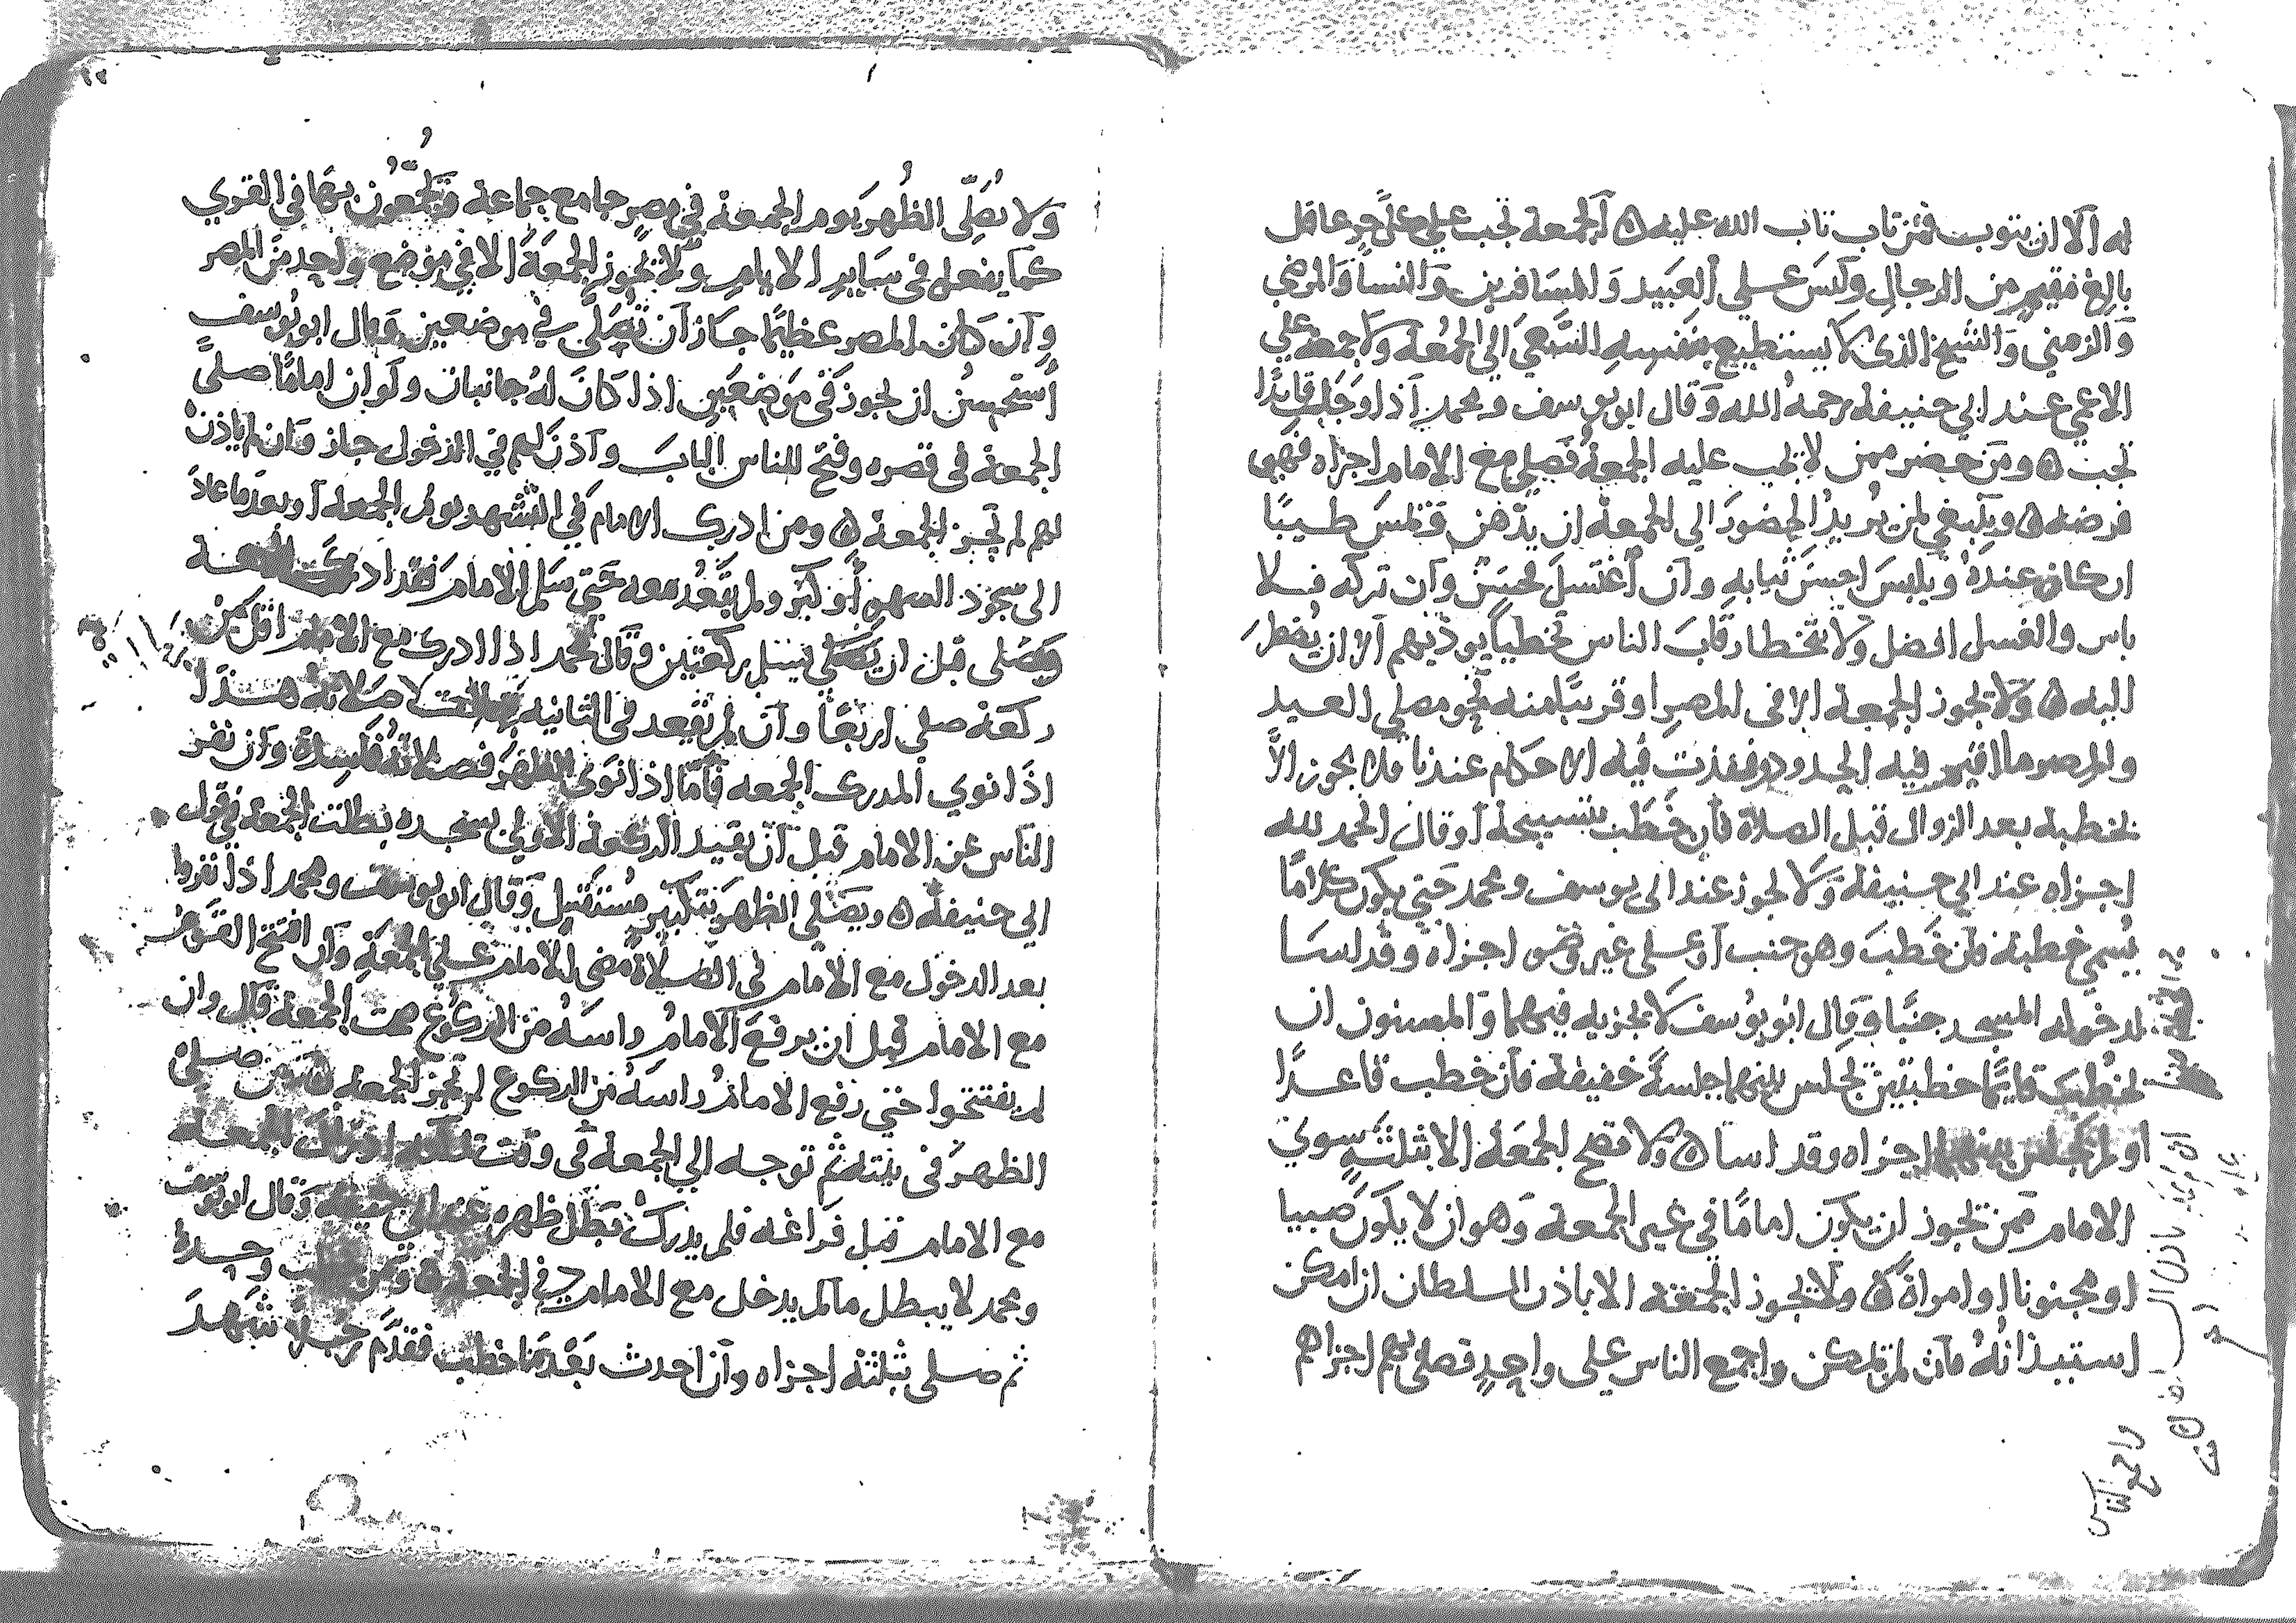 له الا ان يتوب فمن تاب تاب الله عليه ٥ الجمعة تجب على كل حر عاقل
بالغ مقيم من الرجال وليس علي العبيد والمسافرين والنسا والمرضي
والزمني والشيخ الذى لا يستطيع بنفسه السعي الي الجمعة ولا جمعه علي
الاعمي عند ابي حنيفة رحمه الله وقال ابو يوسف ومحمد اذا وجد قايدا
تجب ٥ ومن حضر ممن لا تجب عليه الجمعة فصلي مع الامام اجزاه فهي
فرضه ٥ وينبغي لمن يريد الحضور الي الجمعة ان يدهن ويمس طيبا
ان كان عنده ويلبس احسن ثيابه وان اغتسل فحسن وان تركه فلا
باس والغسل افضل ولا يتخطا رقاب الناس تخطيا يوذيهم الا ان يضطر
اليه ٥ ولا تجوز الجمعة الا فى المصر او قريبا منه نحو مصلي العيد
والمصر ما اقيم فيه الحدود ونفذت فيه الاحكام عندنا ولا يجوز الا
بخطبة بعد الزوال قبل الصلاة فان خطب بتسبيحة او قال الحمد لله
اجزاه عند ابي حنيفة ولا يجوز عند ابى يوسف ومحمد حتي يكون كلاما
يسمي خطبة فان خطب وهو جنب او على غير وضو اجزاه وقد اسا
لدخوله المسجد جنبا وقال ابو يوسف لا يجزيه فيهما والمسنون ان
يخطب قايما خطبتين يجلس بينهما جلسة خفيفة فان خطب قاعدا
او لم يجلس بينهما اجزاه وقد اسا ٥ ولا تصح الجمعة الا بثلثة سوي
الامام ممن يجوز ان يكون اماما في غير الجمعة وهو ان لا يكون صبيا
او مجنونا او امراة ٥ ولا يجوز الجمعة الا باذن السلطان ان امكن
استيذانه فان لم يمكن واجمع الناس على واحد فصلى بهم اجزاهم
واجمع الناس
ولا يصلى الظهر يوم الجمعة في مصر جامع جماعة ويجمعون بها في القري
كما يفعل فى ساير الايام ولا تجوز الجمعة الا في موضع واحد من المصر
وان كان المصر عظيما جاز ان تصلى في موضعين وقال ابو يوسف
استحسن ان يجوز فى موضعين اذا كان له جانبان ولو ان اماما صلى
الجمعة فى قصره وفتح للناس الباب واذن لهم في الدخول جاز وان لم ياذن
لهم لم تجز الجمعة ٥ ومن ادرك الامام في التشهد يوم الجمعة او بعد ما عاد
الى سجود السهو او كبر ولم يقعد معه حتي سلم الامام فقد ادرك الجمعة
ويصلى قبل ان يسلم ركعتين وقال محمد اذا ادرك مع الامام اقل من
ركعة صلي اربعا وان لم يقعد فى الثانية بطلت صلاته هذا
اذا نوي المدرك الجمعه فاما اذا نوى الظهر فصلاته فاسدة وان نفر
الناس عن الامام قبل ان يقيد الركعة الاولي بسجده بطلت الجمعة في قول
ابي حنيفة ٥ ويصلي الظهر بتكبير مستقبل وقال ابو يوسف ومحمد اذا نفروا
بعد الدخول مع الامام في الصلاة مضى الامام علي الجمعة وان افتتح القوم
مع الامام قبل ان يرفع الامام راسه من الركوع صحت الجمعة قال وان
لم يفتتحوا حتي رفع الامام راسه من الركوع لم تجز الجمعة ٥ ومن صلى
الظهر فى بيته ثم توجه الي الجمعة فى وقت
مع الامام قبل فراغه فلم يدرك بطل ظهره عند ابي حنيفة وقال ابو يوسف
ومحمد لا يبطل ما لم يدخل مع الامام في الجمعة ٥ ومن خطب وحده
ثم صلى بثلثة اجزاه وان احدث بعد ما خطب فقدم رجلا شهد